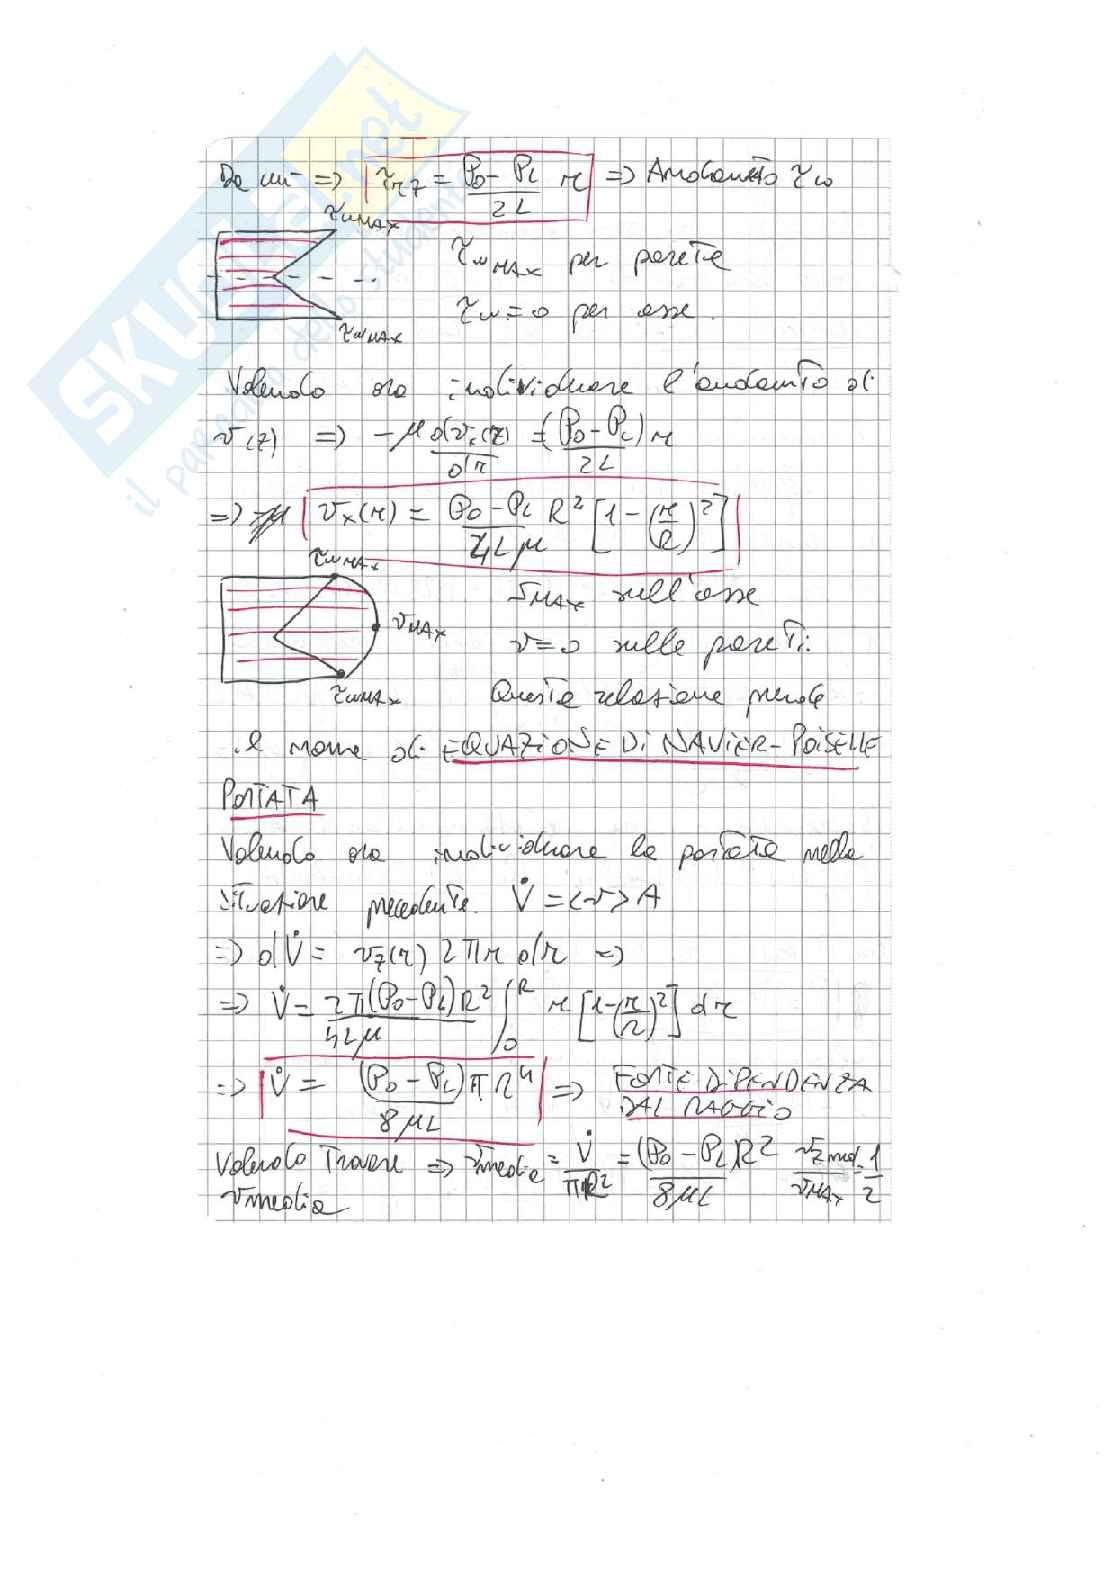 Da cui => τrz = P0 - PL / 2L r => Andamento τw
τwMAX
τwMAX per parete
τw = 0 per asse
τwMAX
Volendo ora individuare l'andamento di
v(z) => -μ dvz(r)/dr = (P0 - PL)/2L r
=> vx(r) = P0 - PL / 4Lμ R² [1 - (r/R)²]
τwMAX
vMAX sull'asse
vMAX
v = 0 sulle pareti.
τwMAX
Questa relazione prende
il nome di EQUAZIONE DI NAVIER-POISELLE
PORTATA
Volendo ora individuare la portata nella
situazione precedente. V̇ = <v> A
=> dV̇ = vz(r) 2πr dr =>
=> V̇ = 2π(P0 - PL)R² / 4Lμ ∫0R r [1 - (r/R)²] dr
=> V̇ = (P0 - PL) π R⁴ / 8μL => FORTE DIPENDENZA
DAL RAGGIO
Volendo trovare => vmedia = V̇/πR² = (P0 - PL)R² / 8μL vz med/vMAX = 1/2
vmedia
SKUOLA.net
il paradiso dello studente